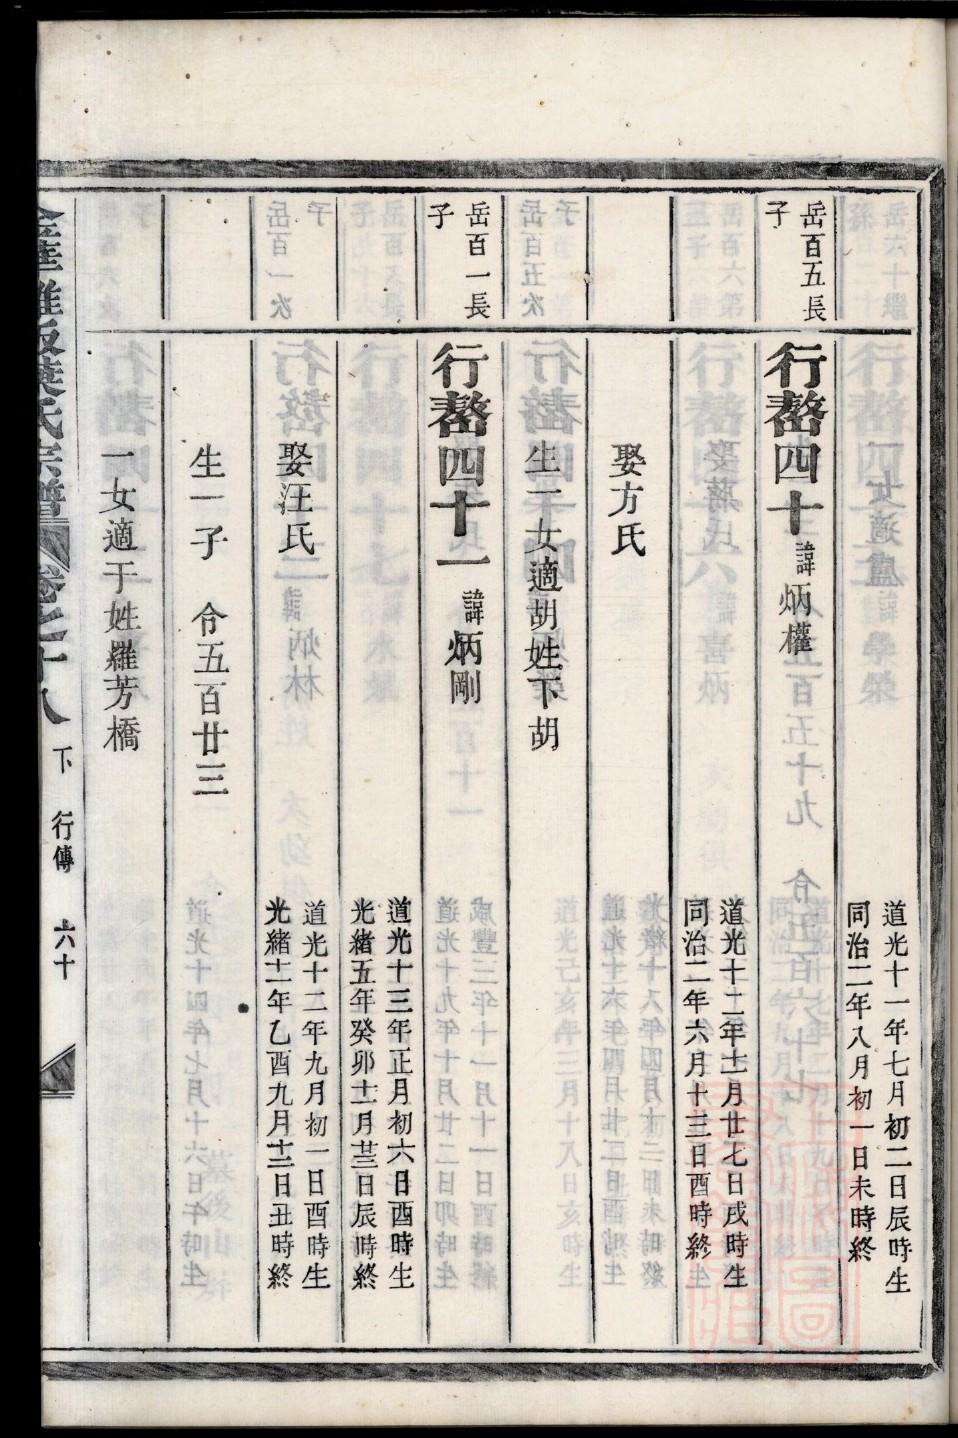 道光十一年七月初二日辰時生
同治二年八月初一日未時終
岳百五長
子
行嶅四十 諱炳權
道光十二年十一月廿七日戌時生
同治二年六月十三日酉時終
娶方氏
生一女適胡姓下胡
岳百一長
子
行嶅四十一 諱炳剛
道光十三年正月初六日酉時生
光緒五年癸卯十一月廿三日辰時終
娶汪氏
道光十二年九月初一日酉時生
光緒十一年乙酉九月十二日丑時終
生一子 令五百廿三
一女適于姓羅芳橋
氏宗譜 卷之十八 下 行傳 六十